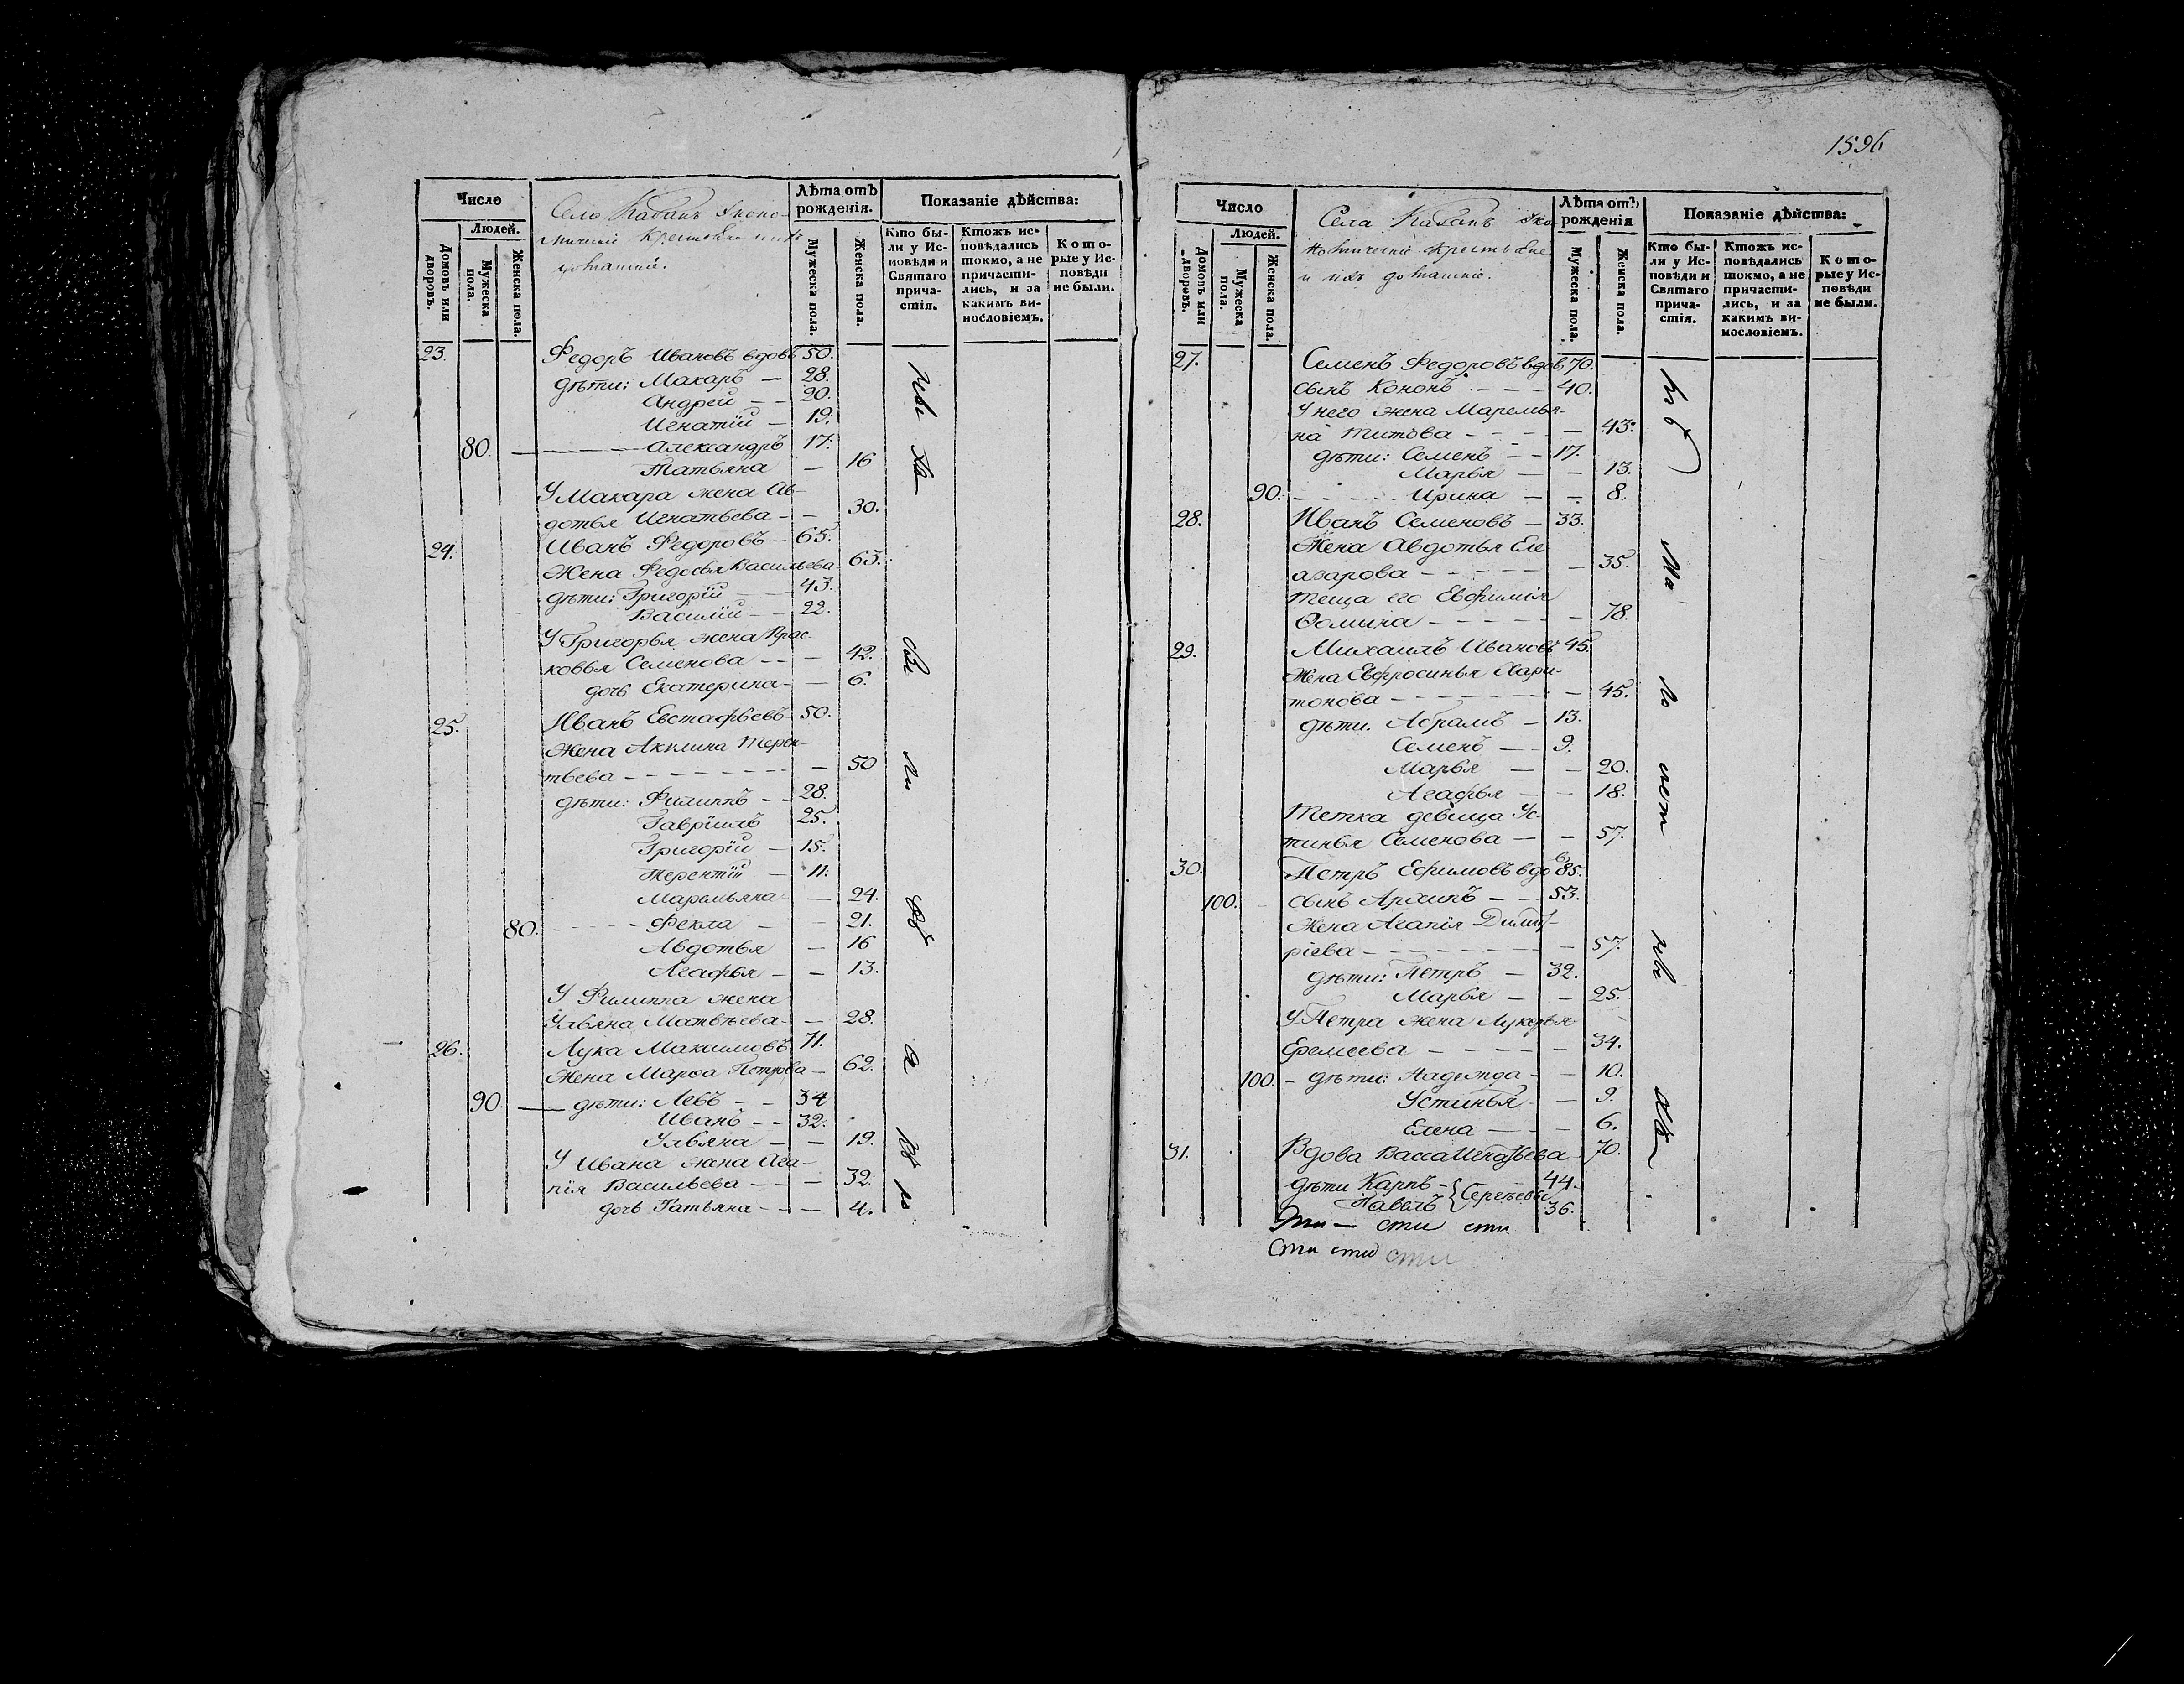 Число
Людей.
Домовъ или дворовъ.
Мужеска пола.
Женска пола.
Села Кабанъ Эконо-
мическіе крестьяне и ихъ
домашніе.
Лѣта отъ рожденія.
Мужеска пола.
Женска пола.
Показаніе дѣйства:
Кто бы-
ли у Ис-
повѣди и
Святаго
прича-
стія.
Ктожъ ис-
повѣдались
токмо, а не
причасти-
лись, и за
какимъ ви-
нословіемъ.
Кото-
рые у Ис-
повѣди
не были.
23. Федоръ Ивановъ вдовъ 50.
дѣти: Макаръ — 28.
Андрей — — 20.
Игнатій — 19.
80. — Александръ 17.
Татьяна — 16
У Макара жена Ав-
дотья Игнатьева — — 30.
24. Иванъ Федоровъ — 65.
Жена Федосья Васильева 65.
дѣти: Григорій — — 43.
Василій — — 22.
У Григорья жена Прас-
ковья Семенова — — — 42.
дочь Екатерина — — 6.
25. Иванъ Евстафьевъ 50.
Жена Акилина Терен-
тьева — — — — — — — 50
дѣти: Филиппъ — — 28.
Гавріилъ 25.
Григорій — 15.
Терентій — 11.
Маремьяна — 24.
80. — — — Фекла — — 21.
Авдотья — 16
Агафья — — 13.
У Филиппа жена
Ульяна Матвѣева — — 28.
26. Лука Максимовъ 71.
Жена Марѳа Петрова — 62.
90. — дѣти: Левъ — — 34
Иванъ — — 32.
Ульяна — — 19.
У Ивана жена Ага-
пія Васильева — — — 32.
дочь Татьяна — — — 4.
1596
Число
Людей.
Домовъ или дворовъ.
Мужеска пола.
Женска пола.
Села Кабанъ Эко
номическіе крестьяне
и ихъ домашніе.
Лѣта отъ рожденія
Мужеска пола.
Женска пола.
Показаніе дѣйства:
Кто бы-
ли у Ис-
повѣди и
Святаго
прича-
стія.
Ктожъ ис-
повѣдались
токмо, а не
причасти-
лись, и за
какимъ ви-
нословіемъ.
Кото-
рые у Ис-
повѣди
не были.
27. Семенъ Федоровъ вдов 70.
сынъ Кононъ — — — 40.
У него жена Маремья-
на Титова — — — — 43.
дѣти: Семенъ — — 17.
Марья — — 13.
90. — — — Ирина — — 8.
28. Иванъ Семеновъ — 33.
Жена Авдотья Еле
азарова — — — — — — 35.
теща его Евфимія
Ѳомина — — — — — — 78.
29. Михаилъ Ивановъ 45.
Жена Евфросинья Хари-
тонова — — — — — — — 45.
дѣти. Абрамъ — 13.
Семенъ — — 9.
Марья — — 20.
Агафья — — 18.
Тетка девица Ус-
тинья Семенова — — 57.
30. Петръ Ефимовъ вдовъ 85.
100. сынъ Архипъ — — 53.
Жена Агапія Димит-
ріева — — — — — — — 57.
дѣти: Петръ — 32.
Марья — — 25.
У Петра жена Лукерья
Еремеева — — — — — 34.
100. — дѣти: Надежда — — 10.
Устинья — — 9.
Елена — — — 6.
31. Вдова Васса Игнатьева — 70.
дѣти Карпъ — 44.
Павелъ } Сергѣевы 36.
сти сти
Сти сти сти